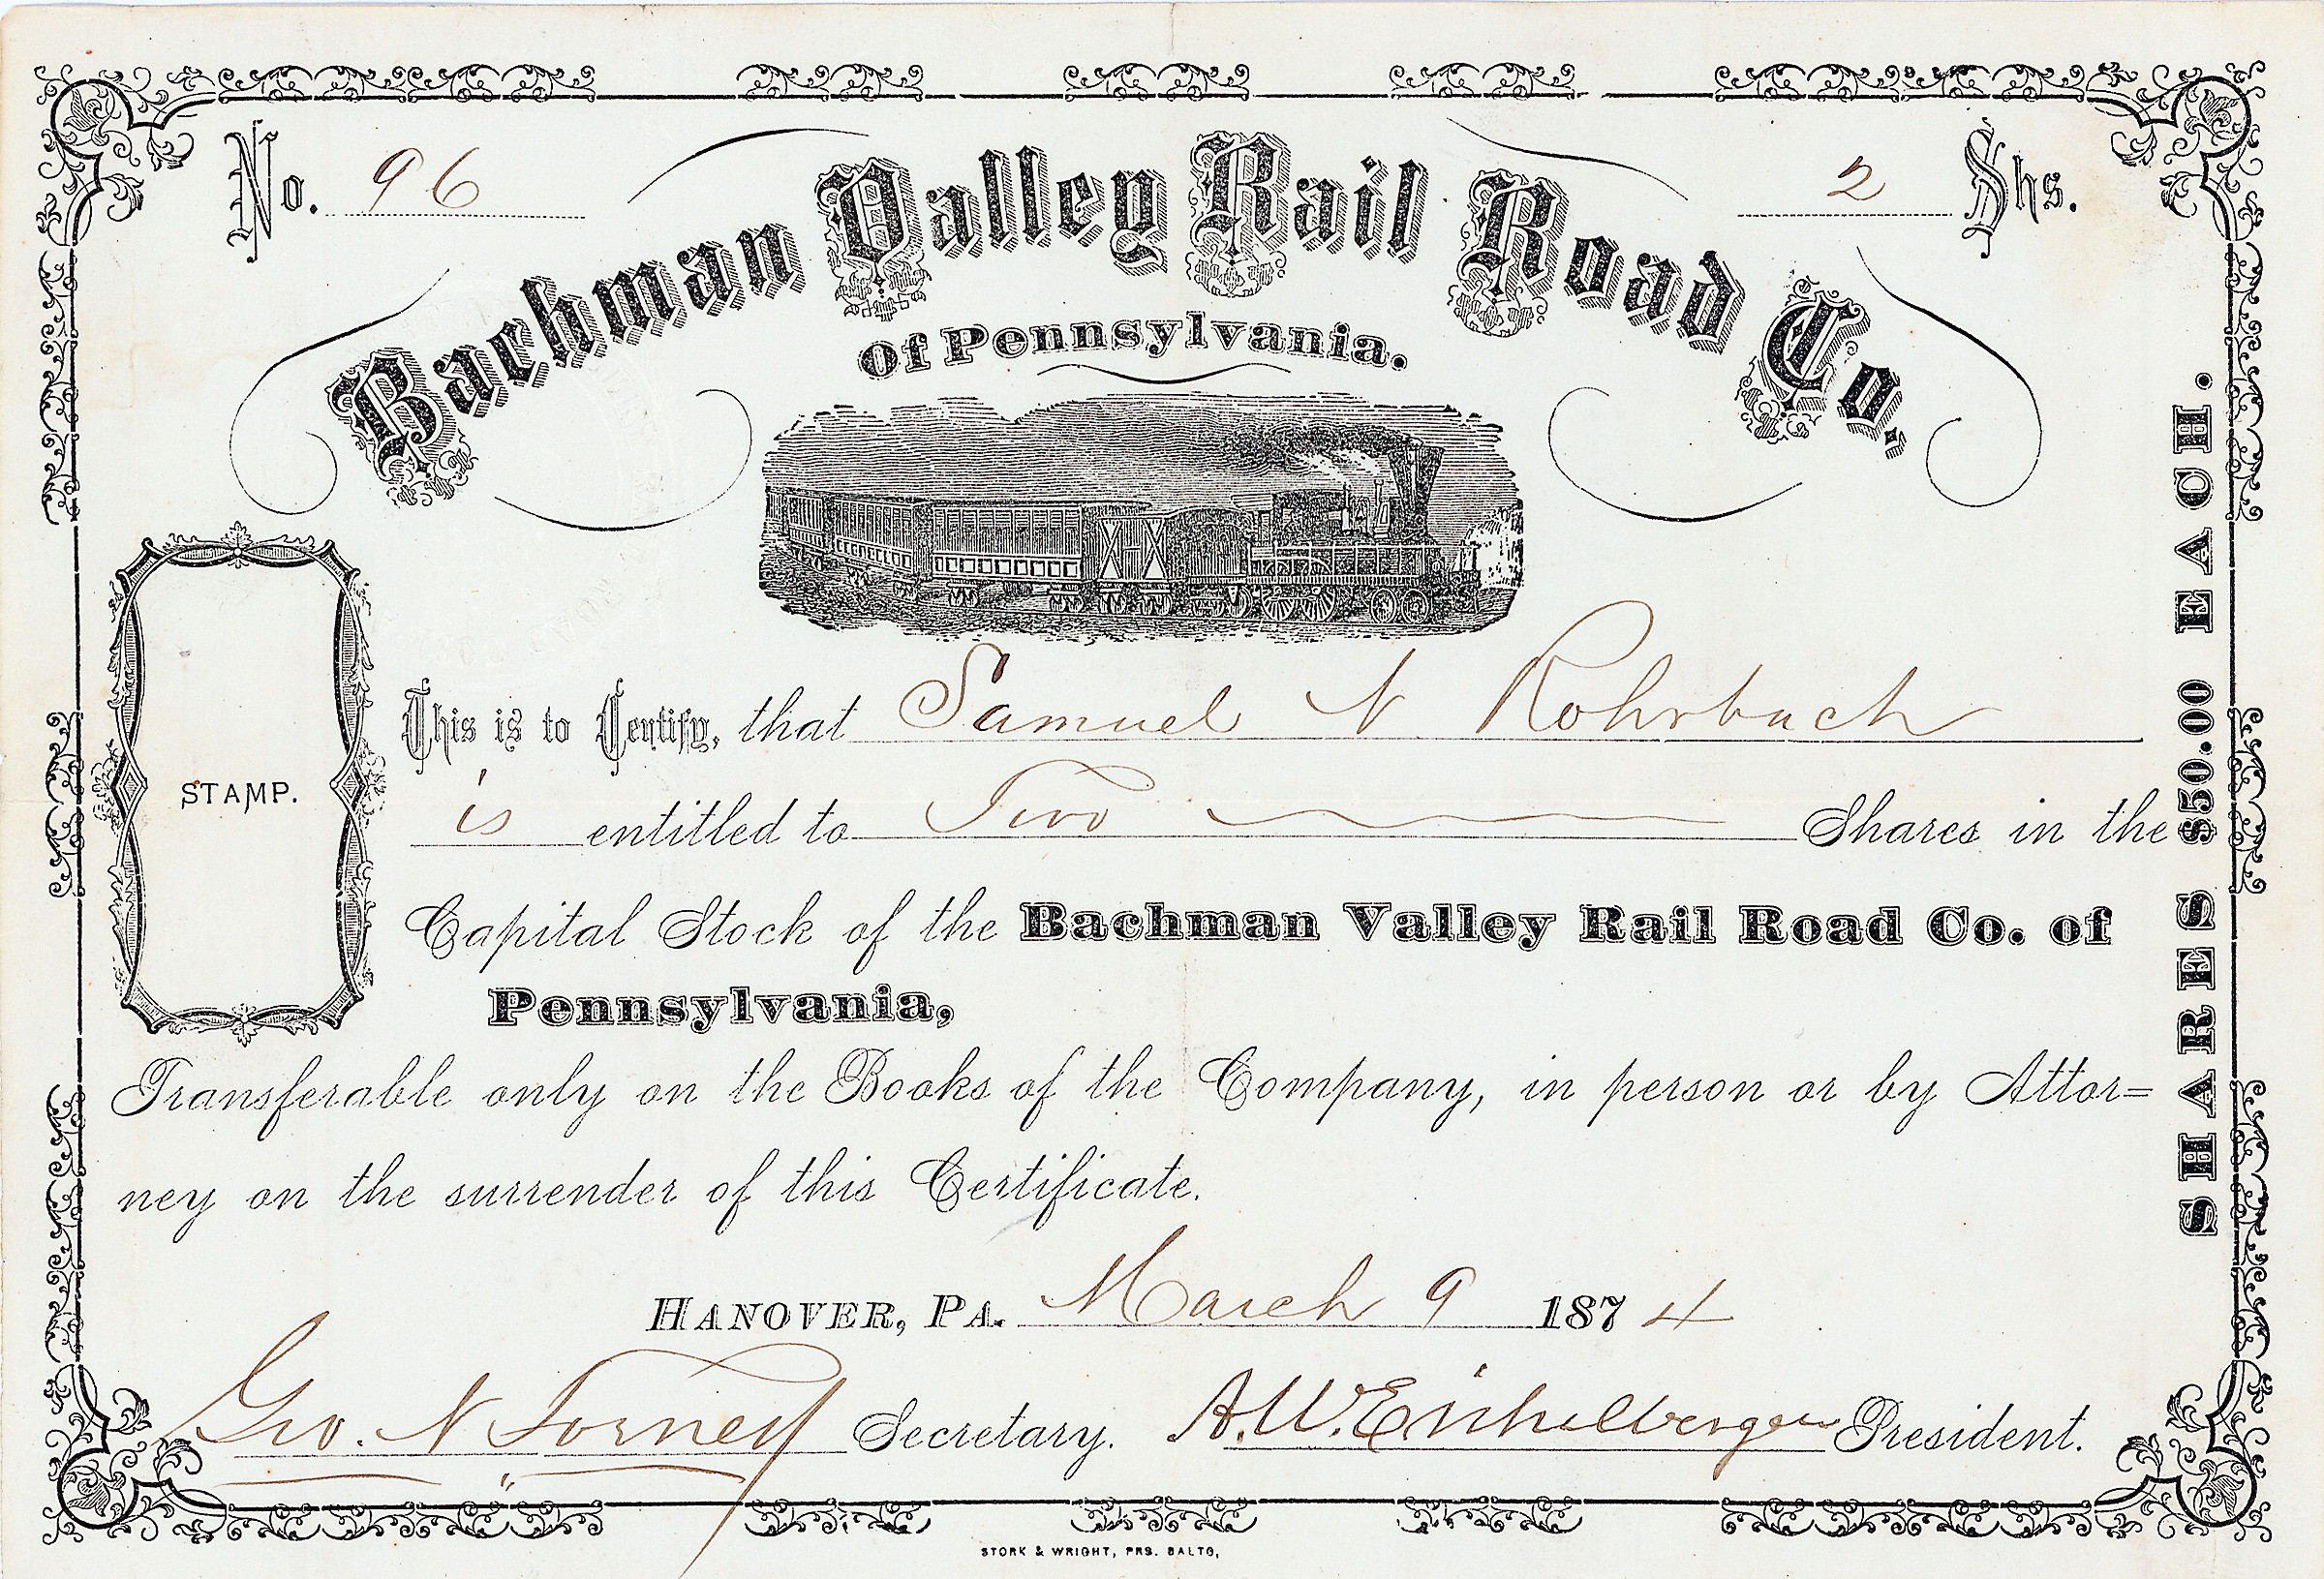 No. 96
2 Shs.
Bachman Valley Rail Road Co.
Of Pennsylvania.
This is to Certify, that Samuel N Rohrbach
is entitled to Two Shares in the
Capital Stock of the Bachman Valley Rail Road Co. of
Pennsylvania,
Transferable only on the Books of the Company, in person or by Attor=
ney on the surrender of this Certificate.
STAMP.
SHARES $50.00 EACH.
HANOVER, PA. March 9 1874
Geo. N Forney Secretary. A. W. Eichelberger President.
STORK & WRIGHT, PRS. BALTO,